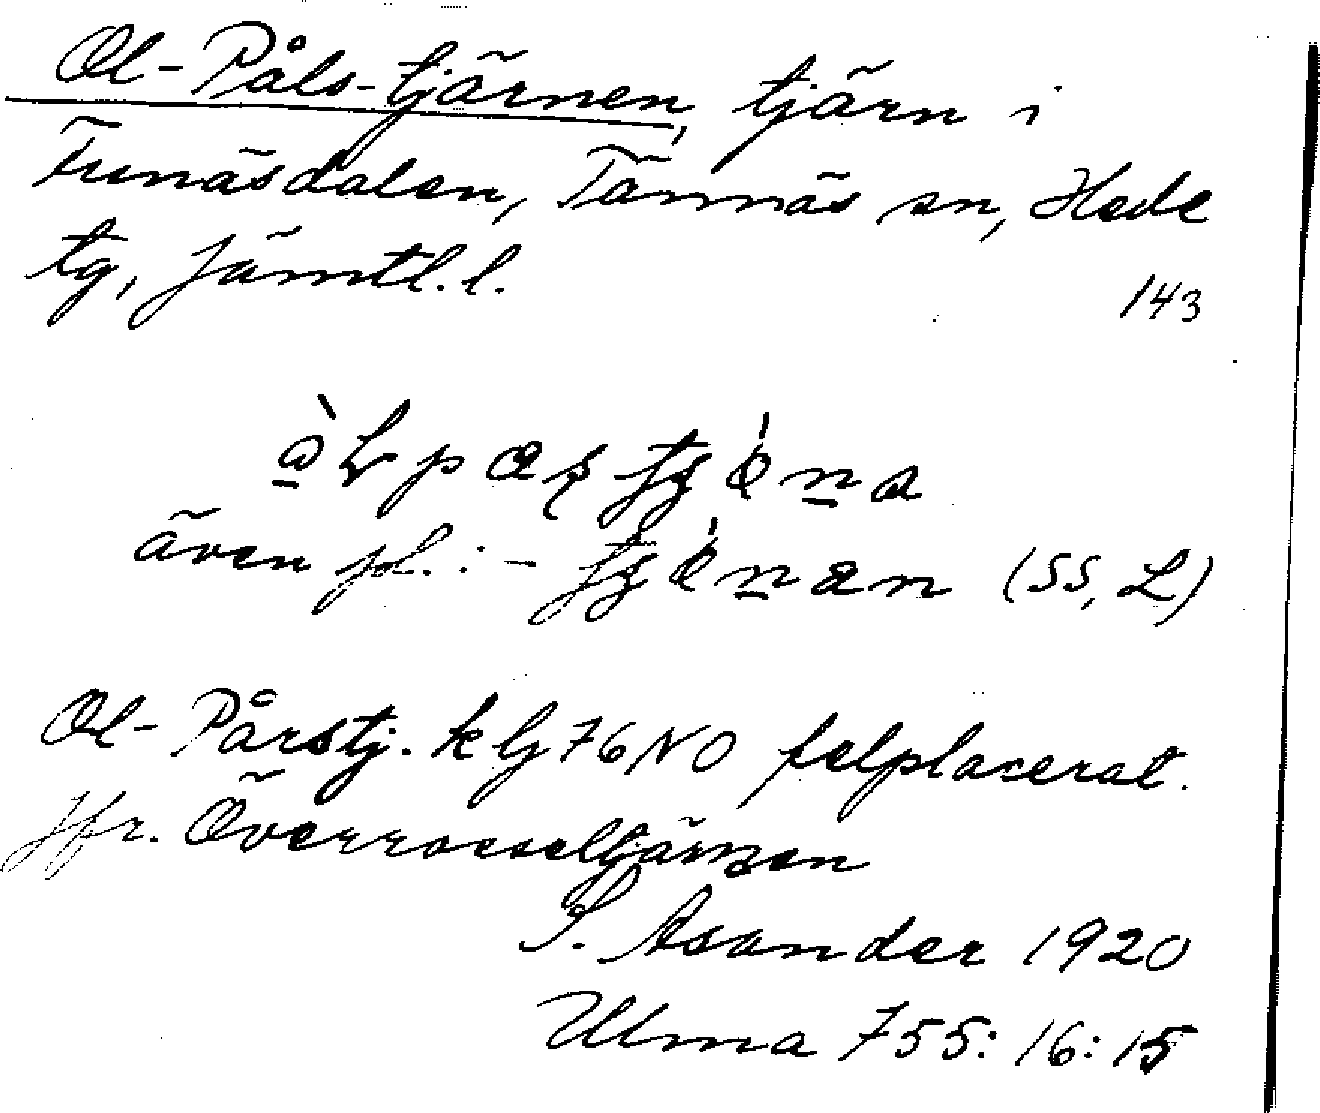 Ol-Påls-tjärnen, tjärn i
Funäsdalen, Tännäs sn, Hede
tg, Jämtl. l.
143
även pl.: - (SS, L)
Ol-Pårstj. k lj 76 NO felplacerat.
Jfr.
S. Asander 1920
Ulma 755: 16: 15